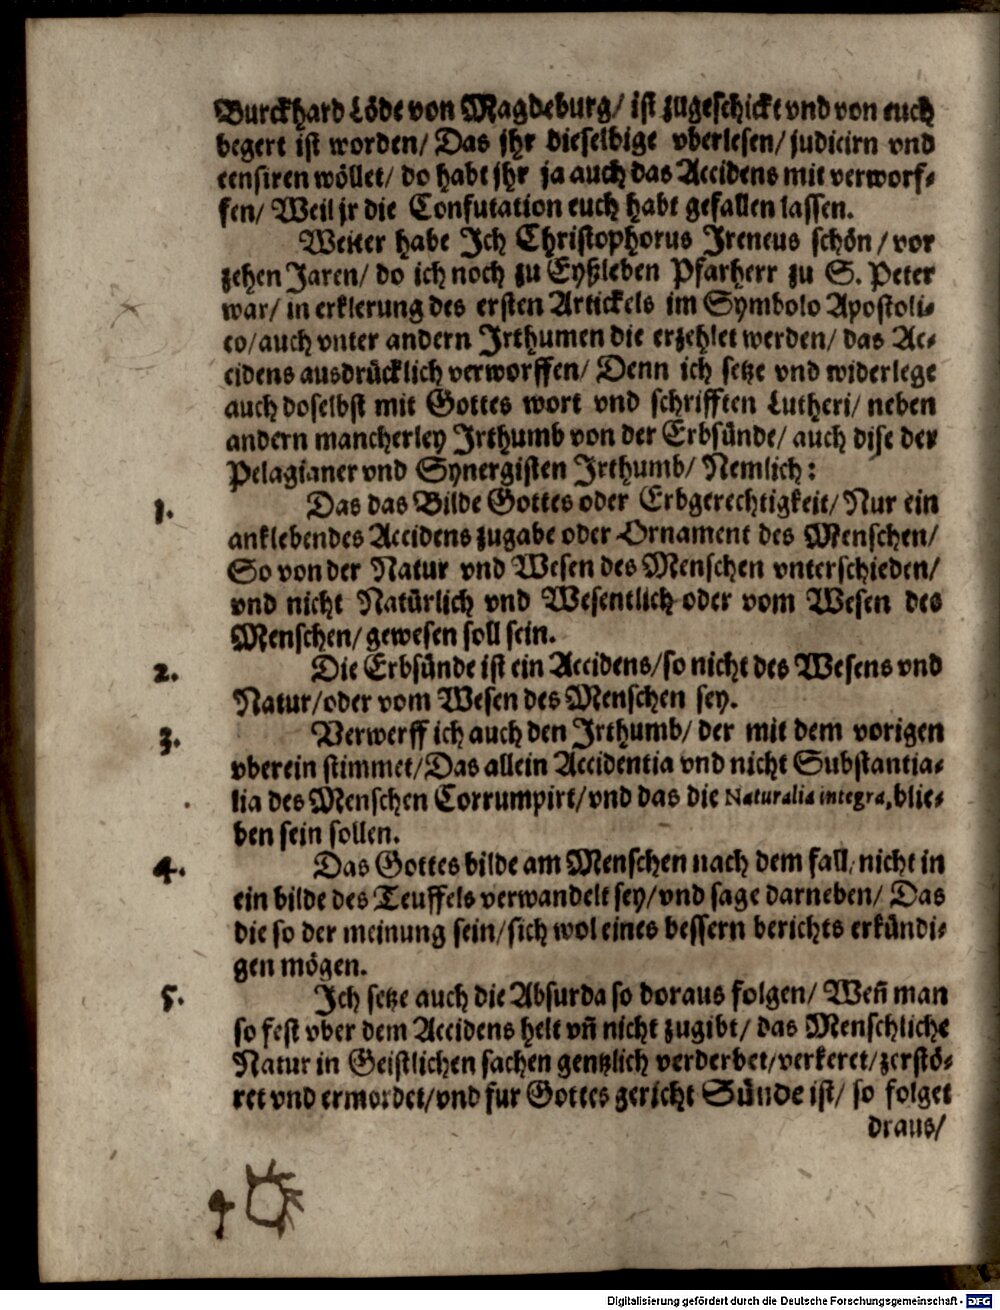 Burckhard Löde von Magdeburg/ ist zugeschickt vnd von euch
begert ist worden/ Das jhr dieselbige vberlesen/ judicirn vnd
censiren wöllet/ do habt jhr ja auch das Accidens mit verworf-
fen/ Weil jr die Confutation euch habt gefallen lassen.
Weiter habe Ich Christophorus Ireneus schön/ vor
zehen Jaren/ do ich noch zu Eyßleben Pfarherr zu S. Peter
war/ in erklerung des ersten Artickels im Symbolo Apostoli-
co/ auch vnter andern Irthumen die erzehlet werden/ das Ac-
cidens ausdrücklich verworffen/ Denn ich setze vnd widerlege
auch doselbst mit Gottes wort vnd schrifften Lutheri/ neben
andern mancherley Irthumb von der Erbsünde/ auch dise der
Pelagianer vnd Synergisten Irthumb/ Nemlich:
1. Das das Bilde Gottes oder Erbgerechtigkeit/ Nur ein
anklebendes Accidens zugabe oder Ornament des Menschen/
So von der Natur vnd Wesen des Menschen vnterschieden/
vnd nicht Natürlich vnd Wesentlich oder vom Wesen des
Menschen/ gewesen soll sein.
2. Die Erbsünde ist ein Accidens/ so nicht des Wesens vnd
Natur/ oder vom Wesen des Menschen sey.
3. Verwerff ich auch den Irthumb/ der mit dem vorigen
vberein stimmet/ Das allein Accidentia vnd nicht Substantia-
lia des Menschen Corrumpirt/ vnd das die Naturalia integra, blie-
ben sein sollen.
4. Das Gottes bilde am Menschen nach dem fall/ nicht in
ein bilde des Teuffels verwandelt sey/ vnd sage darneben/ Das
die so der meinung sein/ sich wol eines bessern berichts erkündi-
gen mögen.
5. Ich setze auch die Absurda so doraus folgen/ Weñ man
so fest vber dem Accidens helt vñ nicht zugibt/ das Menschliche
Natur in Geistlichen sachen gentzlich verderbet/ verkeret/ zerstö-
ret vnd ermordet/ vnd fur Gottes gericht Sünde ist/ so folget
draus/
Digitalisierung gefördert durch die Deutsche Forschungsgemeinschaft - DFG